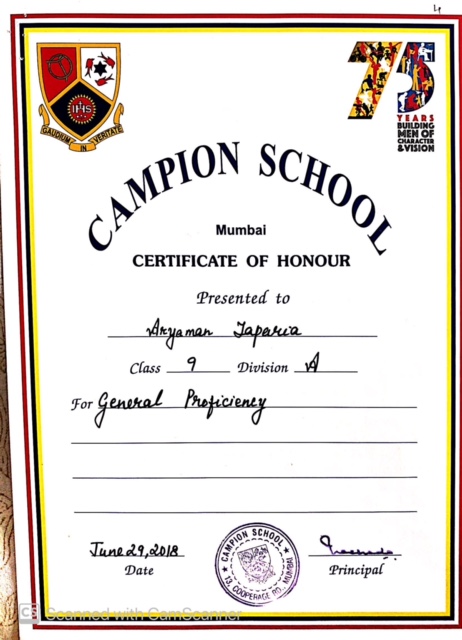 4
IHS
GAUDIUM IN VERITATE
75
YEARS
BUILDING
MEN OF
CHARACTER
& VISION
CAMPION SCHOOL
Mumbai
CERTIFICATE OF HONOUR
Presented to
Aryaman Taparia
Class 9 Division A
For General Proficiency
June 29, 2018
Date
CAMPION SCHOOL
13, COOPERAGE RD., MUMBAI
Principal
CS Scanned with CamScanner